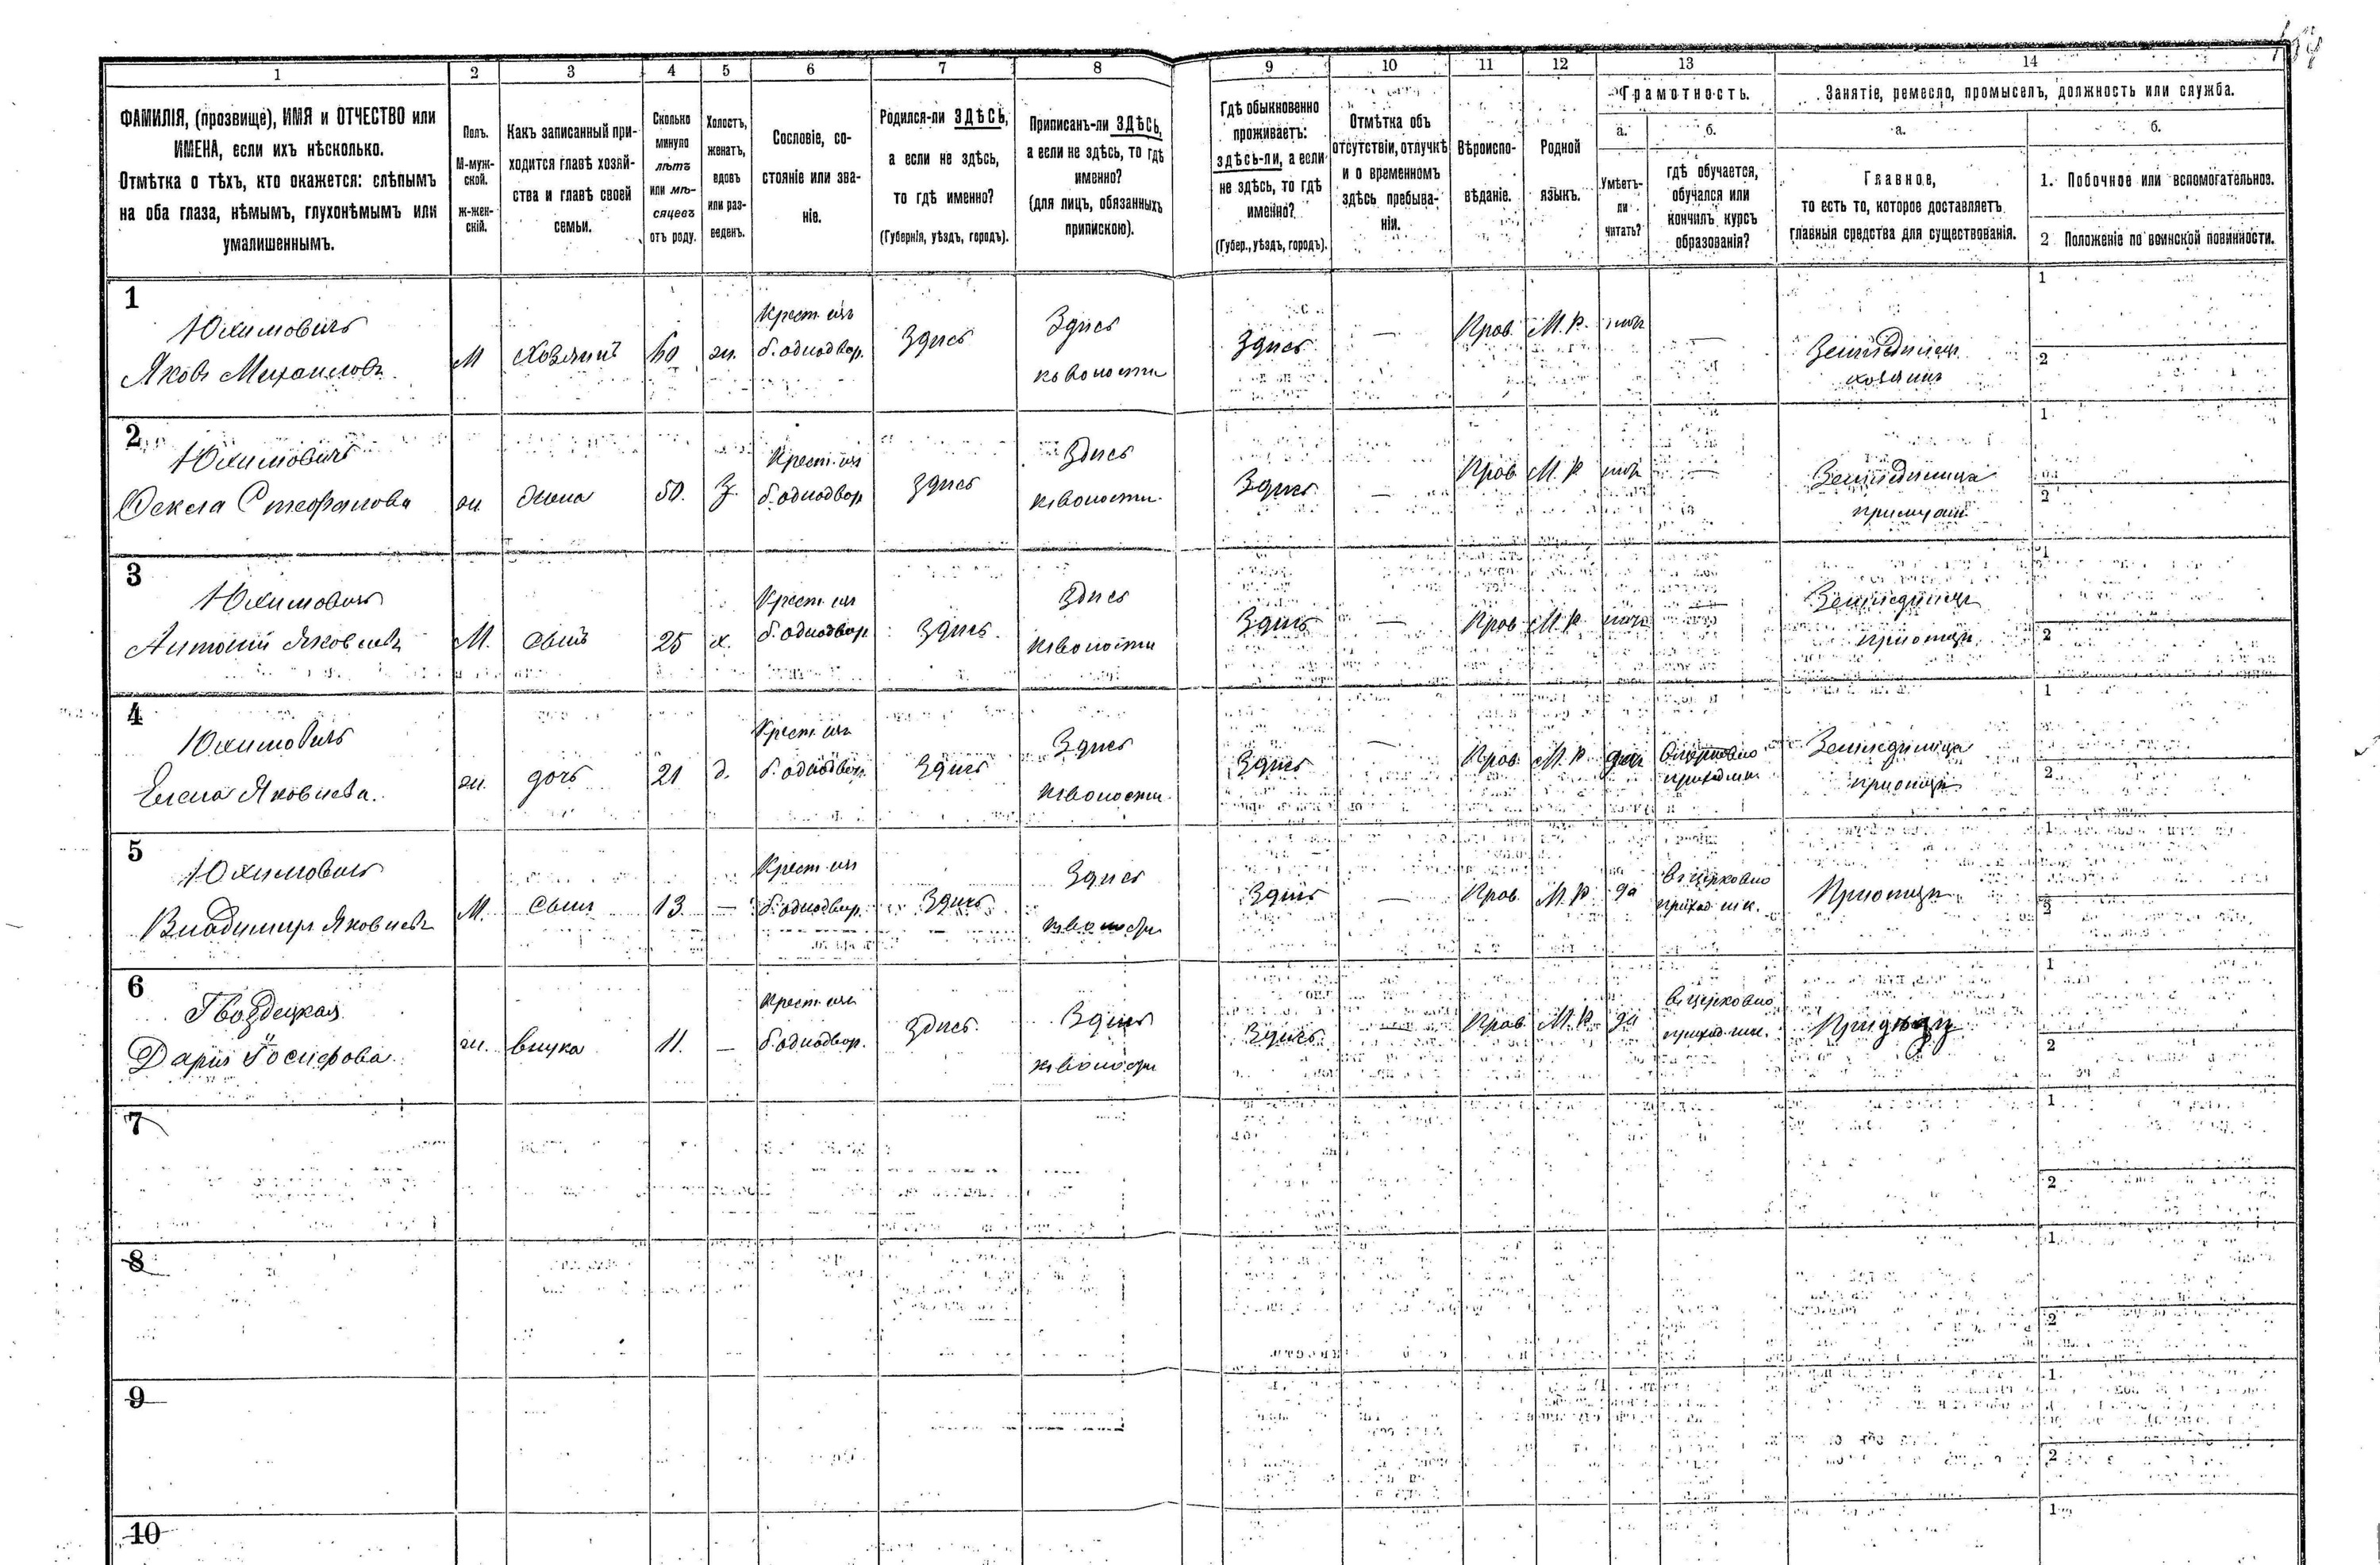 1 2 3 4 5 6 7 8 9 10 11 12 13 14
ФАМИЛІЯ, (прозвище), ИМЯ и ОТЧЕСТВО или
ИМЕНА, если ихъ нѣсколько.
Отмѣтка о тѣхъ, кто окажется: слѣпымъ
на оба глаза, нѣмымъ, глухонѣмымъ или
умалишеннымъ.
Полъ.
М-муж-
ской.
ж-жен-
скій.
Какъ записанный при-
ходится главѣ хозяй-
ства и главѣ своей
семьи.
Сколько
минуло
лѣтъ
или мѣ-
сяцевъ
отъ роду.
Холостъ,
женатъ,
вдовъ
или раз-
веденъ.
Сословіе, со-
стояніе или зва-
ніе.
Родился-ли ЗДѢСЬ,
а если не здѣсь,
то гдѣ именно?
(Губернія, уѣздъ, городъ).
Приписанъ-ли ЗДѢСЬ,
а если не здѣсь, то гдѣ
именно?
(для лицъ, обязанныхъ
припискою).
Гдѣ обыкновенно
проживаетъ:
здѣсь-ли, а если
не здѣсь, то гдѣ
именно?
(Губер., уѣздъ, городъ).
Отмѣтка объ
отсутствіи, отлучкѣ
и о временномъ
здѣсь пребыва-
ніи.
Вѣроиспо-
вѣданіе.
Родной
языкъ.
Грамотность.
а.
Умѣетъ-
ли
читать?
б.
гдѣ обучается,
обучался или
кончилъ курсъ
образованія?
Занятіе, ремесло, промыселъ, должность или служба.
а.
Главное,
то есть то, которое доставляетъ
главныя средства для существованія.
б.
1. Побочное или вспомогательное.
2 Положеніе по воинской повинности.
1
Юхимовичъ
Яковъ Михаиловъ
М Хозяинъ 60 ж.
Крест. изъ
б. однодвор.
Здѣсь
Здѣсь
къ волости
Здѣсь — Прав. М. Р. нѣтъ —
Земледѣлецъ
хозяинъ
1
2
2
Юхимовичъ
Фекла Стефанова
ж жена 50. З.
Крест. изъ
б. однодвор
Здѣсь
Здѣсь
къ волости
Здѣсь — Прав М. Р нѣтъ —
Земледѣлица
при мужѣ
1
2
3
Юхимовичъ
Антоній Яковлевъ
М. сынъ 25 х.
Крест. изъ
б. однодвор
Здѣсь.
Здѣсь
къ волости
Здѣсь — Прав М. Р. нѣтъ —
Земледѣлецъ
при отцѣ
1
2
4
Юхимовичъ
Елена Яковлева.
ж. дочь 21 д.
Крест. изъ
б. однодвор.
Здѣсь
Здѣсь
къ волости
Здѣсь — Прав. М. Р
Земледѣлица
при отцѣ
1
2
5
Юхимовичъ
Владимиръ Яковлевъ
М. сынъ 13 —
Крест. изъ
б. однодвор.
Здѣсь
Здѣсь
къ волости
Здѣсь — Прав. М. Р. да
Въ церковно
приход. шк.
При отцѣ
1
2
6
Гвоздецкая
Дарія Іосифова
ж. внучка 11. —
Крест. изъ
б. однодвор.
Здѣсь.
Здѣсь
къ волости
Здѣсь — Прав. М. Р. да
Въ церковно
приход. шк.
При дѣдѣ
1
2
7
1
2
8
1
2
9
1
2
10
1